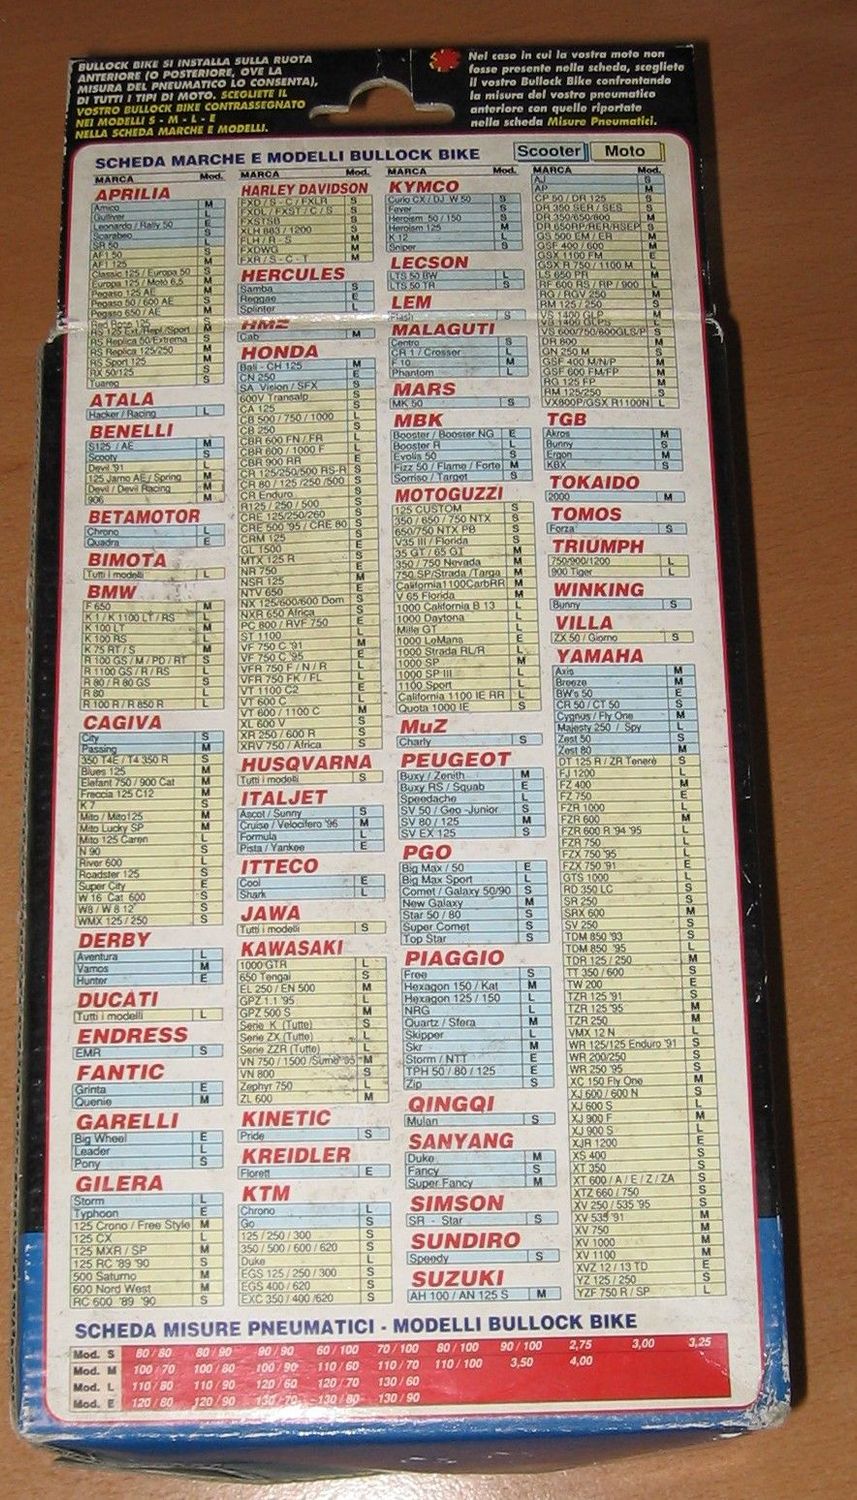 BULLOCK BIKE SI INSTALLA SULLA RUOTA
ANTERIORE (O POSTERIORE, OVE LA
MISURA DEL PNEUMATICO LO CONSENTA),
DI TUTTI I TIPI DI MOTO. SCEGLIETE IL
VOSTRO BULLOCK BIKE CONTRASSEGNATO
NEI MODELLI S - M - L - E
NELLA SCHEDA MARCHE E MODELLI.
Nel caso in cui la vostra moto non
fosse presente nella scheda, scegliete
il vostro Bullock Bike confrontando
la misura del vostro pneumatico
anteriore con quelle riportate
nella scheda Misure Pneumatici.
SCHEDA MARCHE E MODELLI BULLOCK BIKE
Scooter Moto
MARCA Mod.
APRILIA
Amico M
Gulliver L
Leonardo / Rally 50 E
Scarabeo S
SR 50 L
AF1 50 S
AF1 125 M
Classic 125 / Europa 50 S
Europa 125 / Moto 6,5 M
Pegaso 125 AE M
Pegaso 50 / 600 AE S
Pegaso 650 / AE M
Red Rose 125
RS 125 Ext./Repl./Sport M
RS Replica 50/Extrema S
RS Replica 125/250 M
RS Sport 125 M
RX 50/125 S
Tuareg S
ATALA
Hacker / Racing L
BENELLI
S125 / AE M
Scooty S
Devil '91 L
125 Jarno AE / Spring M
Devil / Devil Racing M
906 M
BETAMOTOR
Chrono L
Quadra E
BIMOTA
Tutti i modelli L
BMW
F 650 M
K 1 / K 1100 LT / RS L
K 100 LT M
K 100 RS L
K 75 RT / S M
R 100 GS / M / PD / RT S
R 1100 GS / R / RS L
R 80 / R 80 GS S
R 80 L
R 100 R / R 850 R L
CAGIVA
City S
Passing M
350 T4E / T4 350 R S
Blues 125 M
Elefant 750 / 900 Cat M
Freccia 125 C12 M
K 7 S
Mito / Mito125 M
Mito Lucky SP M
Mito 125 Caren L
N 90 S
River 600 L
Roadster 125 S
Super City E
W 16 Cat 600 S
W8 / W 8 12 S
WMX 125 / 250 S
DERBY
Aventura L
Vamos M
Hunter E
DUCATI
Tutti i modelli L
ENDRESS
EMR S
FANTIC
Grinta E
Quenie M
GARELLI
Big Wheel E
Leader L
Pony S
GILERA
Storm L
Typhoon E
125 Crono / Free Style M
125 CX L
125 MXR / SP M
125 RC '89 '90 S
500 Saturno M
600 Nord West M
RC 600 '89 '90 S
MARCA Mod.
HARLEY DAVIDSON
FXD / S - C / FXLR S
FXDL / FXST / C / S S
FXSTSB S
XLH 883 / 1200 S
FLH / R - S M
FXDWG S
FXR / S - C - T M
HERCULES
Samba S
Reggae E
Splinter L
HMZ
Cab M
HONDA
Bali - CH 125 M
CN 250 E
SA Vision / SFX S
600V Transalp S
CA 125 S
CB 500 / 750 / 1000 L
CB 250 S
CBR 600 FN / FR L
CBR 600 / 1000 F L
CBR 900 RR E
CR 125/250/500 RS-R S
CR 80 / 125 /250 /500 S
CR Enduro S
R125 / 250 / 500 S
CRE 125/250/260 S
CRE 500 '95 / CRE 80 S
CRM 125 S
GL 1500 E
MTX 125 R S
NR 750 E
NSR 125 M
NTV 650 E
NX 125/600/600 Dom S
NXR 650 Africa S
PC 800 / RVF 750 E
ST 1100 L
VF 750 C '91 M
VF 750 C '95 E
VFR 750 F / N / R L
VFR 750 FK / FL L
VT 1100 C2 E
VT 600 C L
VT 600 / 1100 C M
XL 600 V S
XR 250 / 600 R S
XRV 750 / Africa S
HUSQVARNA
Tutti i modelli S
ITALJET
Ascot / Sunny S
Cruise / Velocifero '96 M
Formula L
Pista / Yankee E
ITTECO
Cool E
Shark L
JAWA
Tutti i modelli S
KAWASAKI
1000 GTR L
650 Tengai S
EL 250 / EN 500 M
GPZ 1.1 '95 L
GPZ 500 S M
Serie K (Tutte) S
Serie ZX (Tutte) L
Serie ZZR (Tutte) L
VN 750 / 1500 /Sume '95 M
VN 800 S
Zephyr 750 L
ZL 600 M
KINETIC
Pride S
KREIDLER
Florett E
KTM
Chrono L
Go S
125 / 250 / 300 S
350 / 500 / 600 / 620 S
Duke L
EGS 125 / 250 / 300 S
EGS 400 / 620 S
EXC 350 / 400 /620 S
MARCA Mod.
KYMCO
Curio CX / DJ W 50 S
Fever S
Heroism 50 / 150 S
Heroism 125 M
K 12 L
Sniper S
LECSON
LTS 50 BW L
LTS 50 TR S
LEM
Flash S
MALAGUTI
Centro S
CR 1 / Crosser L
F 10 M
Phantom L
MARS
MK 50 S
MBK
Booster / Booster NG E
Booster R L
Evolis 50 S
Fizz 50 / Flame / Forte M
Sorriso / Target S
MOTOGUZZI
125 CUSTOM S
350 / 650 / 750 NTX S
650/750 NTX PB S
V35 III / Florida S
35 GT / 65 GT M
350 / 750 Nevada M
750 SP/Strada /Targa M
California1100CarbRR M
V 65 Florida M
1000 California B 13 L
1000 Daytona L
Mille GT L
1000 LeMans E
1000 Strada RL/R L
1000 SP M
1000 SP III L
1100 Sport L
California 1100 IE RR L
Quota 1000 IE S
MuZ
Charly S
PEUGEOT
Buxy / Zenith M
Buxy RS / Squab E
Speedache L
SV 50 / Geo -Junior S
SV 80 / 125 M
SV EX 125 S
PGO
Big Max / 50 E
Big Max Sport L
Comet / Galaxy 50/90 S
New Galaxy M
Star 50 / 80 S
Super Comet S
Top Star S
PIAGGIO
Free S
Hexagon 150 / Kat M
Hexagon 125 / 150 L
NRG L
Quartz / Sfera M
Skipper L
Skr M
Storm / NTT E
TPH 50 / 80 / 125 E
Zip S
QINGQI
Mulan S
SANYANG
Duke M
Fancy S
Super Fancy M
SIMSON
SR - Star S
SUNDIRO
Speedy S
SUZUKI
AH 100 / AN 125 S M
MARCA Mod.
AJ S
AP M
CP 50 / DR 125 S
DR 350 SER / SES S
DR 350/650/800 M
DR 650RP/RER/RSEP S
GS 500 EM / ER M
GSF 400 / 600 M
GSX 1100 FM E
GSX R 750 / 1100 M L
LS 650 PR M
RF 600 RS / RP / 900 L
RG / RGV 250 M
RM 125 / 250 S
VS 1400 GLP M
VS 1400 GLPS L
VS 600/750/800GLS/P S
DR 800 M
GN 250 M S
GSF 400 M/N/P M
GSF 600 FM/FP M
RG 125 FP M
RM 125/250 S
VX800P/GSX R1100N L
TGB
Akros M
Bunny S
Ergon M
KBX S
TOKAIDO
2000 M
TOMOS
Forza' S
TRIUMPH
750/900/1200 L
900 Tiger L
WINKING
Bunny S
VILLA
ZX 50 / Giorno S
YAMAHA
Axis M
Breeze M
BW's 50 E
CR 50 / CT 50 S
Cygnus / Fly One M
Majesty 250 / Spy L
Zest 50 S
Zest 80 M
DT 125 R / ZR Tenerè S
FJ 1200 L
FZ 400 M
FZ 750 E
FZR 1000 L
FZR 600 M
FZR 600 R '94 '95 L
FZR 750 L
FZX 750 '95 L
FZX 750 '91 E
GTS 1000 L
RD 350 LC S
SR 250 S
SRX 600 M
SV 250 S
TDM 850 '93 S
TDM 850 '95 L
TDR 125 / 250 M
TT 350 / 600 S
TW 200 E
TZR 125 '91 S
TZR 125 '95 M
TZR 250 M
VMX 12 N L
WR 125/125 Enduro '91 S
WR 200/250 S
WR 250 '95 S
XC 150 Fly One M
XJ 600 / 600 N S
XJ 600 S L
XJ 900 F M
XJ 900 S L
XJR 1200 E
XS 400 M
XT 350 S
XT 600 / A / E / Z / ZA S
XTZ 660 / 750 S
XV 250 / 535 '95 S
XV 535 '91 M
XV 750 M
XV 1000 M
XV 1100 M
XVZ 12 / 13 TD E
YZ 125 / 250 S
YZF 750 R / SP L
SCHEDA MISURE PNEUMATICI - MODELLI BULLOCK BIKE
Mod. S 80 / 80 80 / 90 90 / 90 60 / 100 70 / 100 80 / 100 90 / 100 2,75 3,00 3,25
Mod. M 100 / 70 100 / 80 100 / 90 110 / 60 110 / 70 110 / 100 3,50 4,00
Mod. L 110 / 80 110 / 90 120 / 60 120 / 70 130 / 60
Mod. E 120 / 80 120 / 90 130 / 70 130 / 80 130 / 90